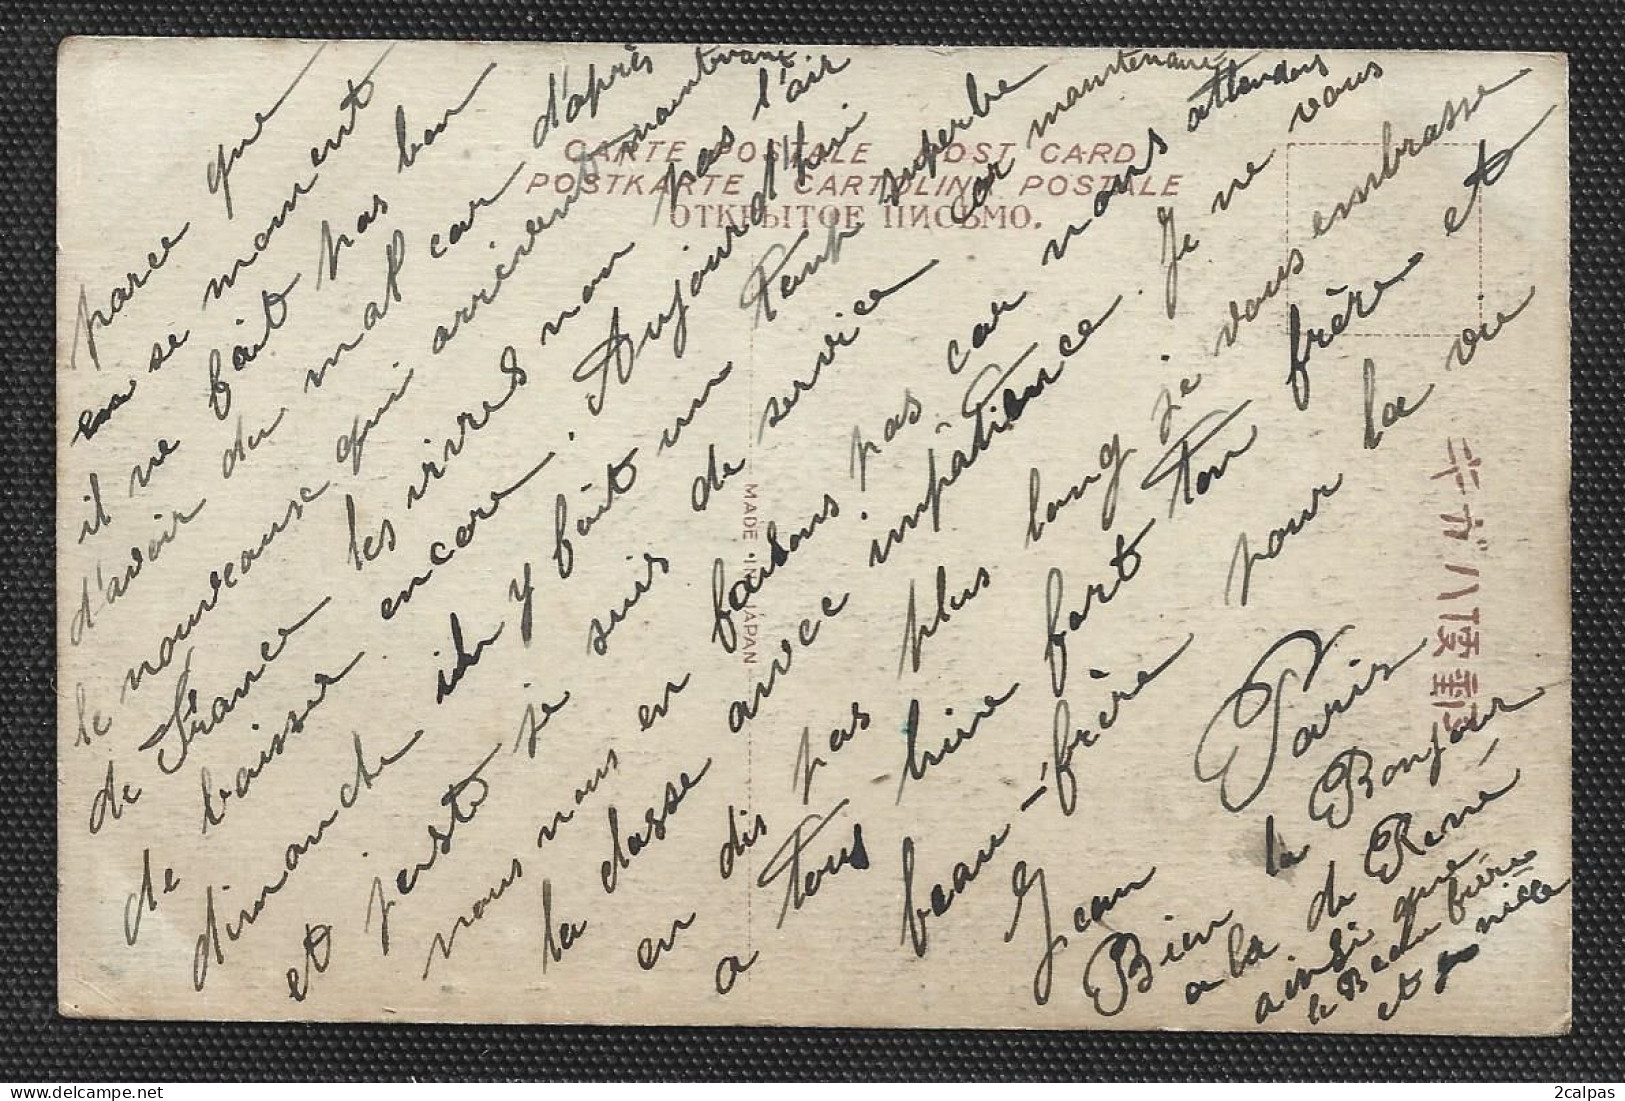 CARTE POSTALE POST CARD
POSTKARTE CARTOLINA POSTALE
ОТКРЫТОЕ ПИСЬМО.
MADE IN JAPAN
parce que
en se moment
il ne fait pas bon
d'avoir du mal car d'après
le nouveaux qui arrivent maintenant
de France les vivres non pas l'air
de baisser encore. Aujourd'hui
dimanche il y fait un temp superbe
et juste je suis de service car maintenant
nous nous en faisons pas car nous attendons
la classe avec impatience. Je ne vous
en dis pas plus long je vous embrasse
a tous bien fort ton frère et
beau-frère pour la vie
Jean Paris
Bien la Bonjour
a la de René
ainsi que
le Beau frère
et nièce
2calpas